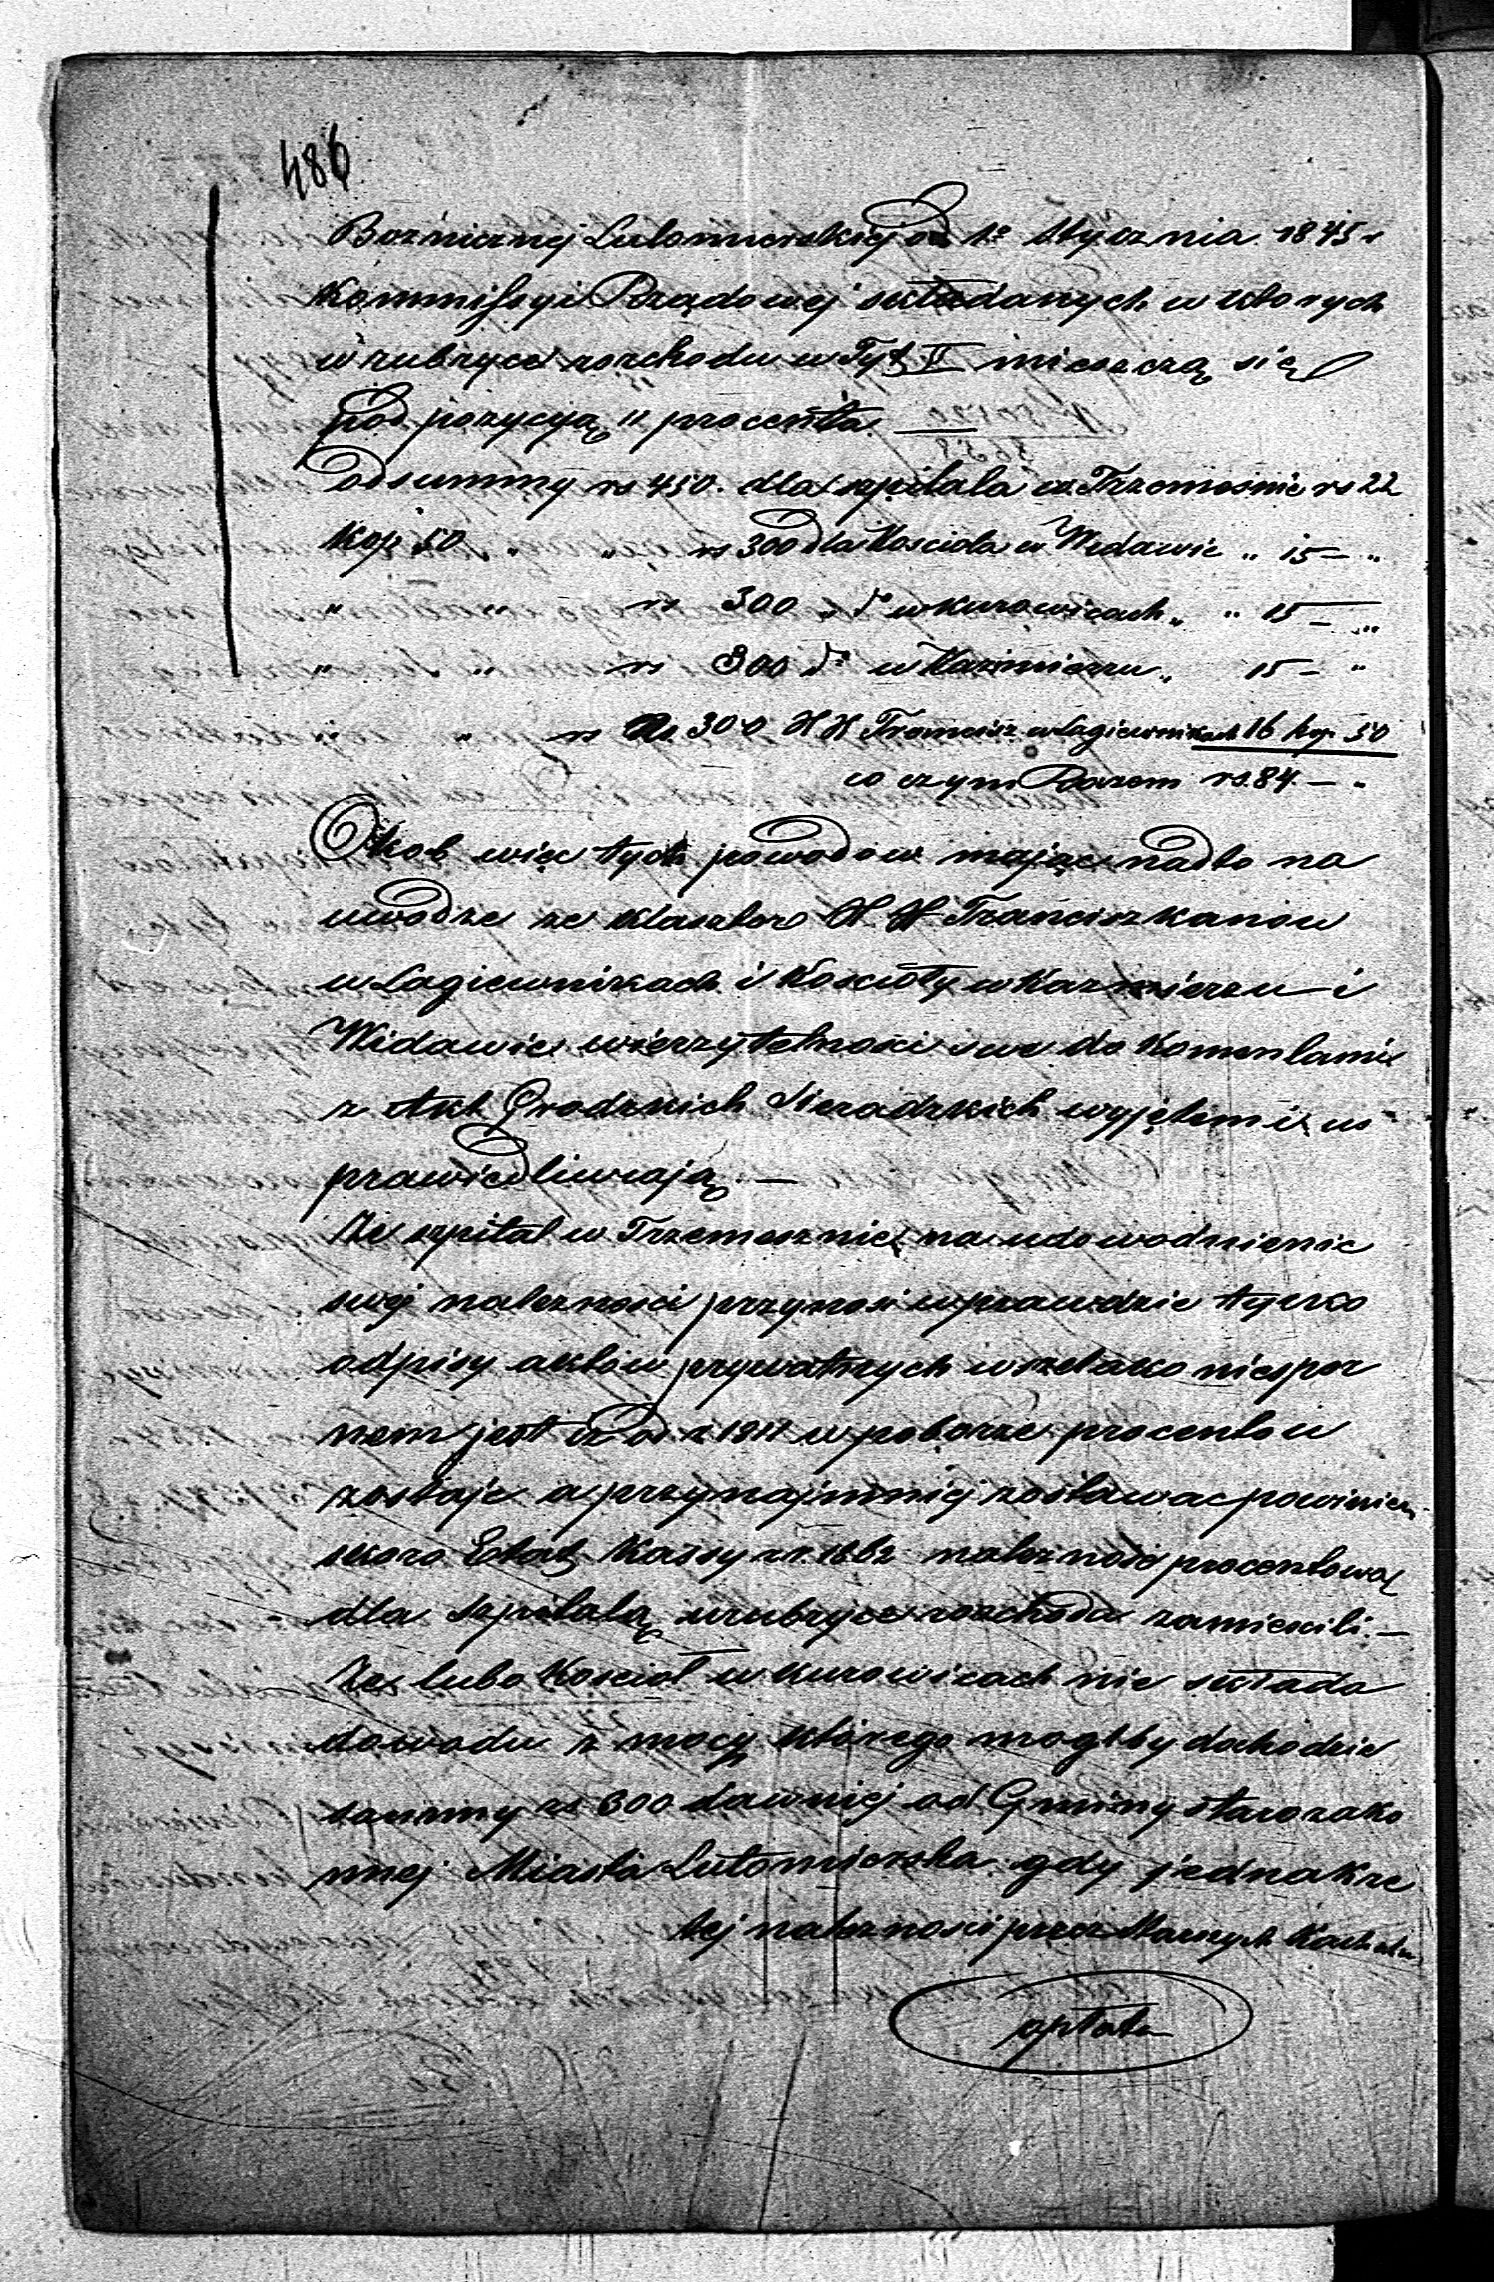 486
Bożnicznej Lutomierskiej od 1º Stycznia 1845 r
Kommissyi Rządowej składanych w ktorych
w rubryce rozchodu w Tyt II mieszczą się
pod pozycyą 11 procenta —
Od summy rs 450. dla szpitala w Trzemośnie rs 22
Kop 50 „ „ rs 300 dla Koscioła w Widawie „ 15 — „
„ „ rs 300 „ dº w Kurowicach „ „ 15 — „
„ „ rs 300 dº w Kazimierzu „ 15 — „
„ „ rs 300 XX Francisz w Łagiewnikach 16 kop 50
w czym Razem rs. 84 — „
Obok więc tych powodow mając nadto na
uwadze ze Klasztor X. X Franciszkanow
w Lagiewnikach i Koscioły w Kazmierzu i
Widawie wierzytelnosci swe do Komplanie
z Akt Grodzkich Sieradzkich wyjętemi us
prawiedliwiają. —
Ze szpital w Trzemesznie na udowodnienie
swej nalezności przynosi wprawdzie tylko
odpisy aktów prywatnych wszelako niespor
nem jest iz od r 1817 w poborze procentow
zostaje a przynajmniej zostawac powinien
skoro Etat Kassy z r. 1862 nalezność procentową
dla szpitala w rubryce rozchodu zamiescili. —
Ze lubo Kościoł w Kurowicach nie składa
dowodu z mocy którego mogłby dochodzic
summy rs 300 dawniej od Gminy starozako
nnej Miasta Lutomierska gdy jednakze
tej nalezności przez
opłata